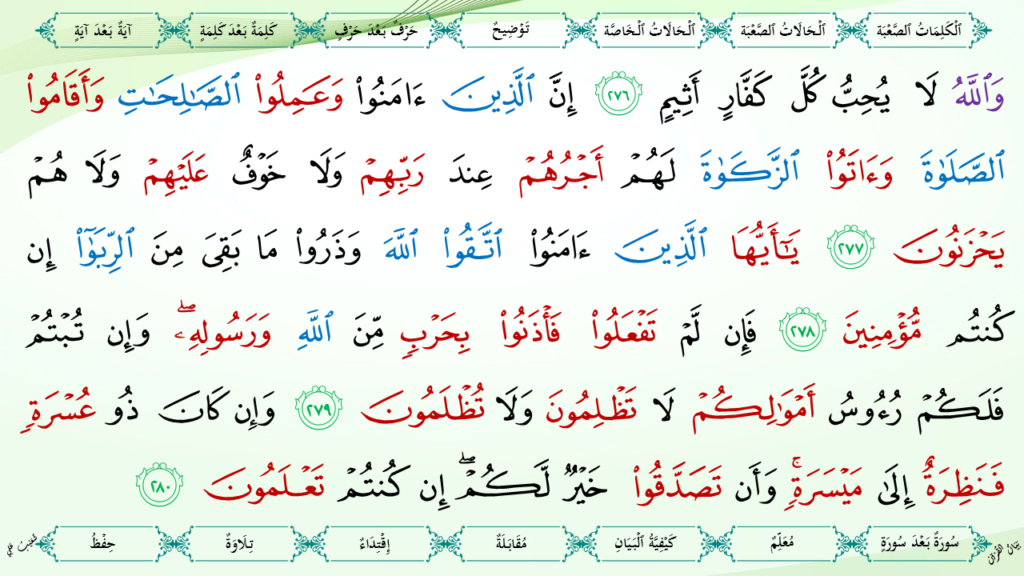 اَلْكَلِمَاتُ الصَّعْبَة اَلْحَالَاتُ الصَّعْبَة اَلْحَالَاتُ الْخَاصَّة تَوْضِيحٌ حَرْفٌ بَعْدَ حَرْفٍ كَلِمَةٌ بَعْدَ كَلِمَةٍ آيَةٌ بَعْدَ آيَةٍ
وَٱللَّهُ لَا يُحِبُّ كُلَّ كَفَّارٍ أَثِيمٍ ٢٧٦ إِنَّ ٱلَّذِينَ ءَامَنُوا۟ وَعَمِلُوا۟ ٱلصَّـٰلِحَـٰتِ وَأَقَامُوا۟
ٱلصَّلَوٰةَ وَءَاتَوُا۟ ٱلزَّكَوٰةَ لَهُمْ أَجْرُهُمْ عِندَ رَبِّهِمْ وَلَا خَوْفٌ عَلَيْهِمْ وَلَا هُمْ
يَحْزَنُونَ ٢٧٧ يَـٰٓأَيُّهَا ٱلَّذِينَ ءَامَنُوا۟ ٱتَّقُوا۟ ٱللَّهَ وَذَرُوا۟ مَا بَقِىَ مِنَ ٱلرِّبَوٰٓا۟ إِن
كُنتُم مُّؤْمِنِينَ ٢٧٨ فَإِن لَّمْ تَفْعَلُوا۟ فَأْذَنُوا۟ بِحَرْبٍ مِّنَ ٱللَّهِ وَرَسُولِهِۦ ۖ وَإِن تُبْتُمْ
فَلَكُمْ رُءُوسُ أَمْوَٰلِكُمْ لَا تَظْلِمُونَ وَلَا تُظْلَمُونَ ٢٧٩ وَإِن كَانَ ذُو عُسْرَةٍ
فَنَظِرَةٌ إِلَىٰ مَيْسَرَةٍ ۚ وَأَن تَصَدَّقُوا۟ خَيْرٌ لَّكُمْ ۖ إِن كُنتُمْ تَعْلَمُونَ ٢٨٠
سُورَةٌ بَعْدَ سُورَةٍ مُعَلِّمٌ كَيْفِيَّةُ الْبَيَانِ مُقَابَلَةٌ إِقْتِدَاءٌ تِلَاوَةٌ حِفْظٌ
بَيَانُ الْقُرْآنِ